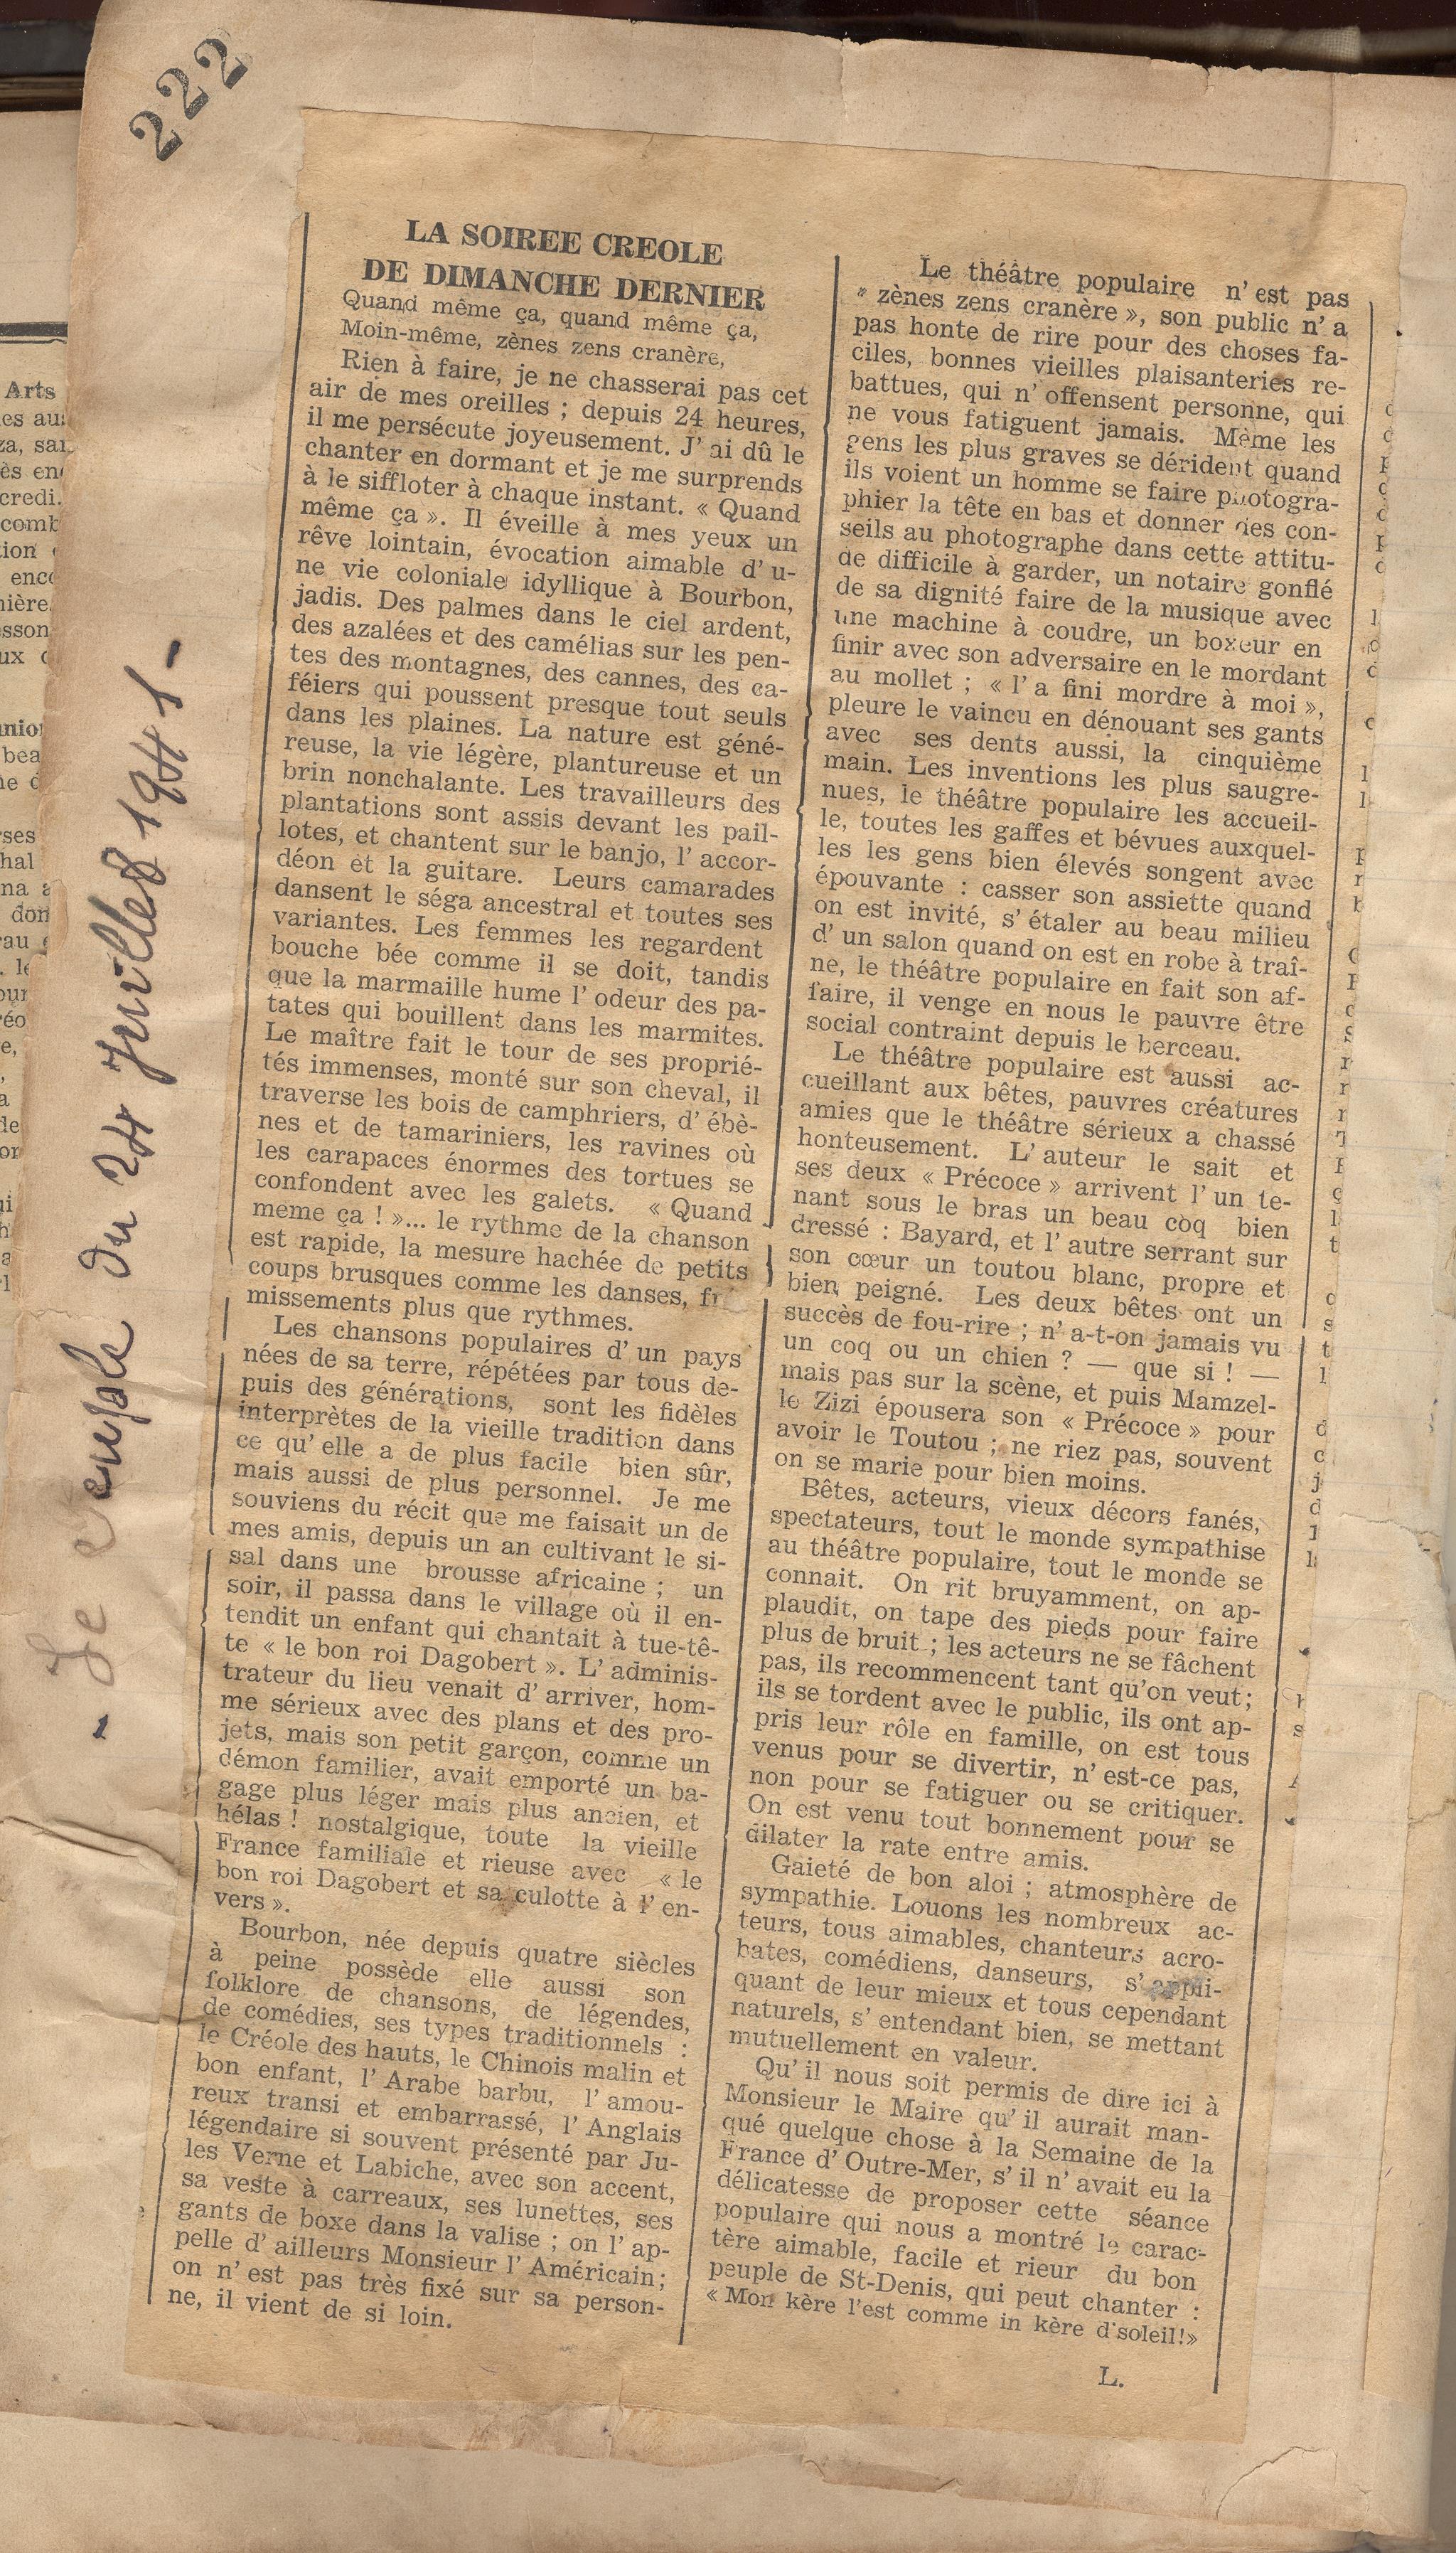 222
- Le Peuple du 24 Juillet 1941 -
LA SOIREE CREOLE
DE DIMANCHE DERNIER
Quand même ça, quand même ça,
Moin-même, zènes zens cranère,
Rien à faire, je ne chasserai pas cet
air de mes oreilles ; depuis 24 heures,
il me persécute joyeusement. J' ai dû le
chanter en dormant et je me surprends
à le siffloter à chaque instant. « Quand
même ça ». Il éveille à mes yeux un
rêve lointain, évocation aimable d' u-
ne vie coloniale idyllique à Bourbon,
jadis. Des palmes dans le ciel ardent,
des azalées et des camélias sur les pen-
tes des montagnes, des cannes, des ca-
féiers qui poussent presque tout seuls
dans les plaines. La nature est géné-
reuse, la vie légère, plantureuse et un
brin nonchalante. Les travailleurs des
plantations sont assis devant les pail-
lotes, et chantent sur le banjo, l' accor-
déon et la guitare. Leurs camarades
dansent le séga ancestral et toutes ses
variantes. Les femmes les regardent
bouche bée comme il se doit, tandis
que la marmaille hume l' odeur des pa-
tates qui bouillent dans les marmites.
Le maître fait le tour de ses proprié-
tés immenses, monté sur son cheval, il
traverse les bois de camphriers, d' ébè-
nes et de tamariniers, les ravines où
les carapaces énormes des tortues se
confondent avec les galets. « Quand
meme ça ! »... le rythme de la chanson
est rapide, la mesure hachée de petits
coups brusques comme les danses, fr
missements plus que rythmes.
Les chansons populaires d' un pays
nées de sa terre, répétées par tous de-
puis des générations, sont les fidèles
interprètes de la vieille tradition dans
ce qu' elle a de plus facile bien sûr,
mais aussi de plus personnel. Je me
souviens du récit que me faisait un de
mes amis, depuis un an cultivant le si-
sal dans une brousse africaine ; un
soir, il passa dans le village où il en-
tendit un enfant qui chantait à tue-tê-
te « le bon roi Dagobert ». L' adminis-
trateur du lieu venait d' arriver, hom-
me sérieux avec des plans et des pro-
jets, mais son petit garçon, comme un
démon familier, avait emporté un ba-
gage plus léger mais plus ancien, et
hélas ! nostalgique, toute la vieille
France familiale et rieuse avec « le
bon roi Dagobert et sa culotte à l' en-
vers ».
Bourbon, née depuis quatre siècles
à peine possède elle aussi son
folklore de chansons, de légendes,
de comédies, ses types traditionnels :
le Créole des hauts, le Chinois malin et
bon enfant, l' Arabe barbu, l' amou-
reux transi et embarrassé, l' Anglais
légendaire si souvent présenté par Ju-
les Verne et Labiche, avec son accent,
sa veste à carreaux, ses lunettes, ses
gants de boxe dans la valise ; on l' ap-
pelle d' ailleurs Monsieur l' Américain;
on n' est pas très fixé sur sa person-
ne, il vient de si loin.
Le théâtre populaire n' est pas
« zènes zens cranère », son public n' a
pas honte de rire pour des choses fa-
ciles, bonnes vieilles plaisanteries re-
battues, qui n' offensent personne, qui
ne vous fatiguent jamais. Même les
gens les plus graves se dérident quand
ils voient un homme se faire photogra-
phier la tête en bas et donner des con-
seils au photographe dans cette attitu-
de difficile à garder, un notaire gonflé
de sa dignité faire de la musique avec
une machine à coudre, un boxeur en
finir avec son adversaire en le mordant
au mollet ; « l' a fini mordre à moi »,
pleure le vaincu en dénouant ses gants
avec ses dents aussi, la cinquième
main. Les inventions les plus saugre-
nues, le théâtre populaire les accueil-
le, toutes les gaffes et bévues auxquel-
les les gens bien élevés songent avec
épouvante : casser son assiette quand
on est invité, s' étaler au beau milieu
d' un salon quand on est en robe à traî-
ne, le théâtre populaire en fait son af-
faire, il venge en nous le pauvre être
social contraint depuis le berceau.
Le théâtre populaire est aussi ac-
cueillant aux bêtes, pauvres créatures
amies que le théâtre sérieux a chassé
honteusement. L' auteur le sait et
ses deux « Précoce » arrivent l' un te-
nant sous le bras un beau coq bien
dressé : Bayard, et l' autre serrant sur
son cœur un toutou blanc, propre et
bien peigné. Les deux bêtes ont un
succès de fou-rire ; n' a-t-on jamais vu
un coq ou un chien ? — que si ! —
mais pas sur la scène, et puis Mamzel-
le Zizi épousera son « Précoce » pour
avoir le Toutou ; ne riez pas, souvent
on se marie pour bien moins.
Bêtes, acteurs, vieux décors fanés,
spectateurs, tout le monde sympathise
au théâtre populaire, tout le monde se
connait. On rit bruyamment, on ap-
plaudit, on tape des pieds pour faire
plus de bruit ; les acteurs ne se fâchent
pas, ils recommencent tant qu'on veut;
ils se tordent avec le public, ils ont ap-
pris leur rôle en famille, on est tous
venus pour se divertir, n' est-ce pas,
non pour se fatiguer ou se critiquer.
On est venu tout bonnement pour se
dilater la rate entre amis.
Gaieté de bon aloi ; atmosphère de
sympathie. Louons les nombreux ac-
teurs, tous aimables, chanteurs acro-
bates, comédiens, danseurs, s' appli-
quant de leur mieux et tous cependant
naturels, s' entendant bien, se mettant
mutuellement en valeur.
Qu' il nous soit permis de dire ici à
Monsieur le Maire qu' il aurait man-
qué quelque chose à la Semaine de la
France d' Outre-Mer, s' il n' avait eu la
délicatesse de proposer cette séance
populaire qui nous a montré le carac-
tère aimable, facile et rieur du bon
peuple de St-Denis, qui peut chanter :
« Mon kère l'est comme in kère d'soleil!»
L.